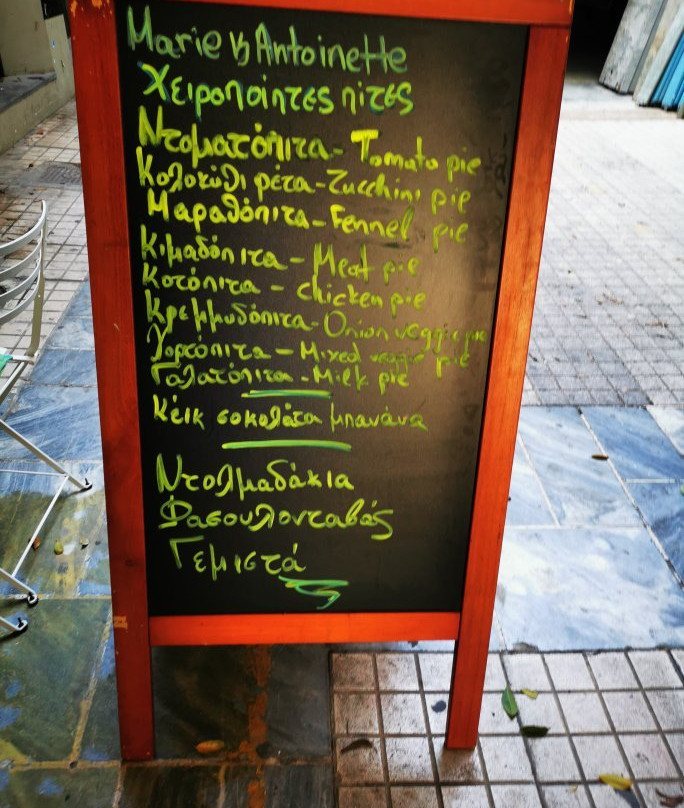 Marie & Antoinette
Χειροποίητες πίτες
Ντοματόπιτα - Tomato pie
Κολοκύθι φέτα - Zucchini pie
Μαραθόπιτα - Fennel pie
Κιμαδόπιτα - Meat pie
Κοτόπιτα - chicken pie
Κρεμμυδόπιτα - Onion veggie pie
Χορτόπιτα - Mixed veggie pie
Γαλατόπιτα - Milk pie
Κέικ σοκολάτα μπανάνα
Ντολμαδάκια
Φασουλονταβάς
Γεμιστά